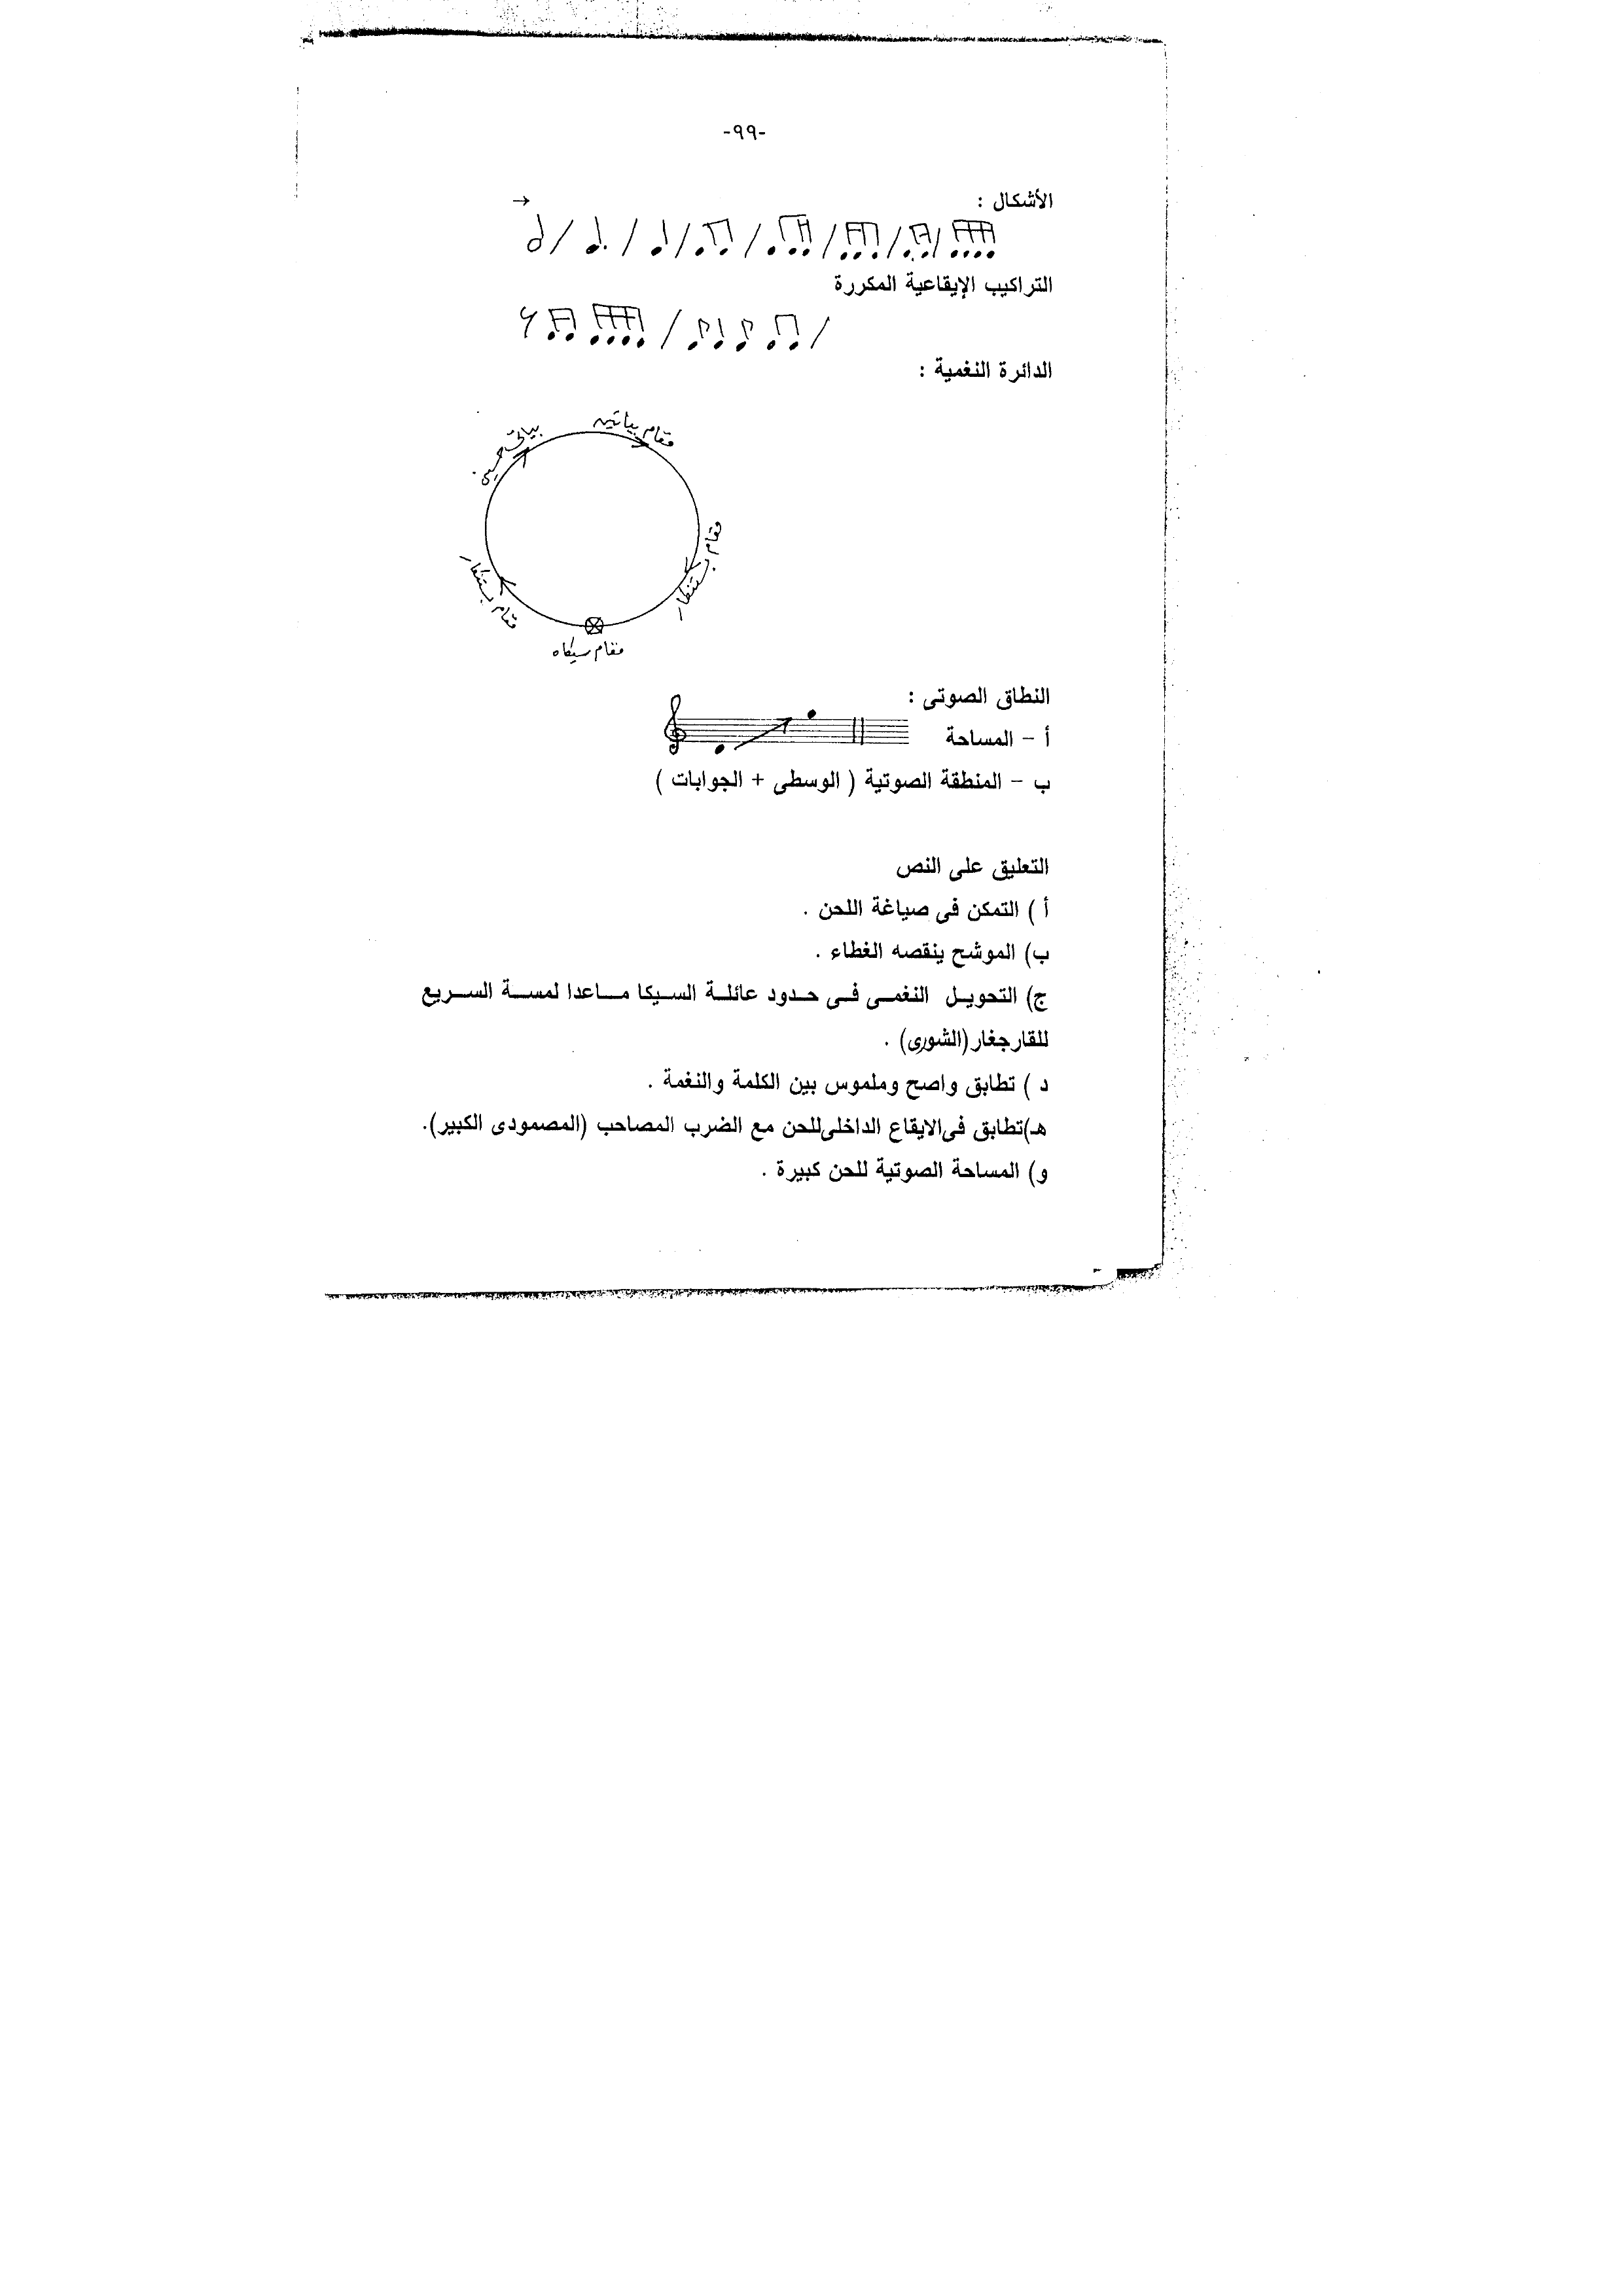 -٩٩-
الأشكال :
التراكيب الإيقاعية المكررة
الدائرة النغمية :
مقام بياتين
بياتى حسينى
مقام بستنكار
مقام بستنكار
مقام سيكاه
النطاق الصوتى :
أ - المساحة
ب - المنطقة الصوتية ( الوسطى + الجوابات )
التعليق على النص
أ ) التمكن فى صياغة اللحن .
ب) الموشح ينقصه الغطاء .
ج) التحويل النغمى فى حدود عائلة السيكا ماعدا لمسة السريع
للقارجغار (الشورى) .
د ) تطابق واصح وملموس بين الكلمة والنغمة .
هـ)تطابق فى الايقاع الداخلى للحن مع الضرب المصاحب (المصمودى الكبير).
و) المساحة الصوتية للحن كبيرة .